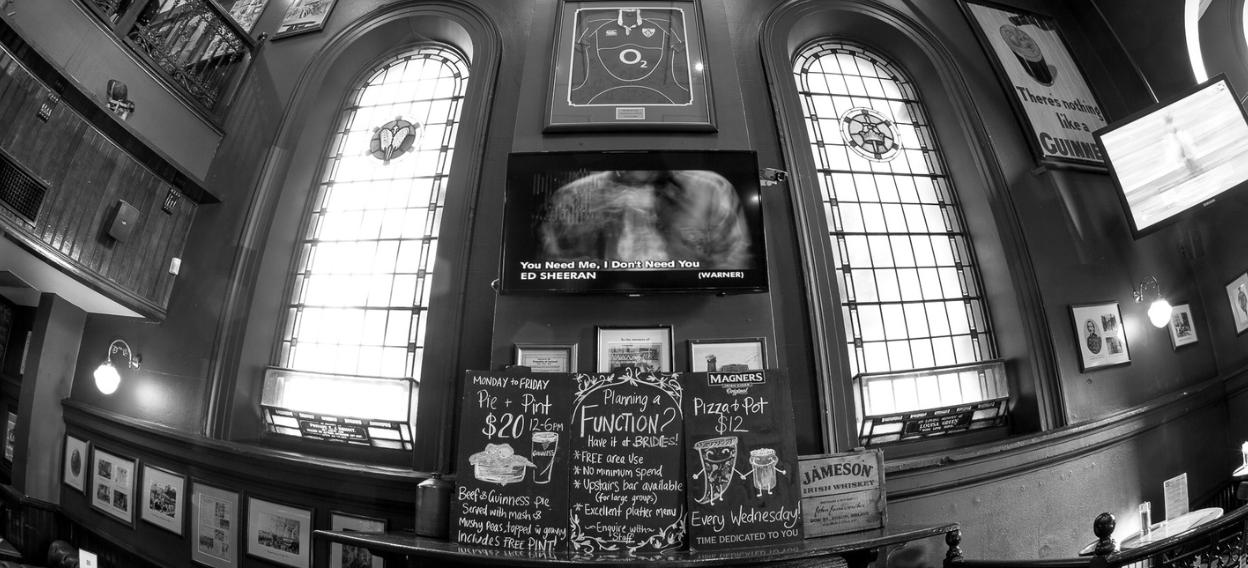 O2
There's nothing
like a
GUINNE
You Need Me, I Don't Need You
ED SHEERAN
(WARNER)
MONDAY to FRIDAY
Pie + Pint
$20 12-6PM
GUINNESS
Beef & Guinness pie
Served with mash &
Mushy Peas, topped w gravy
Includes FREE PINT!
Planning a
FUNCTION?
Have it at BRIDIES!
*FREE area use
*No minimum spend
*Upstairs bar available
(for large groups)
*Excellent platter menu
~Enquire with~
Staff
MAGNERS
Original
Pizza & Pot
$12
Every Wednesday!
TIME DEDICATED TO YOU
JAMESON
IRISH WHISKEY